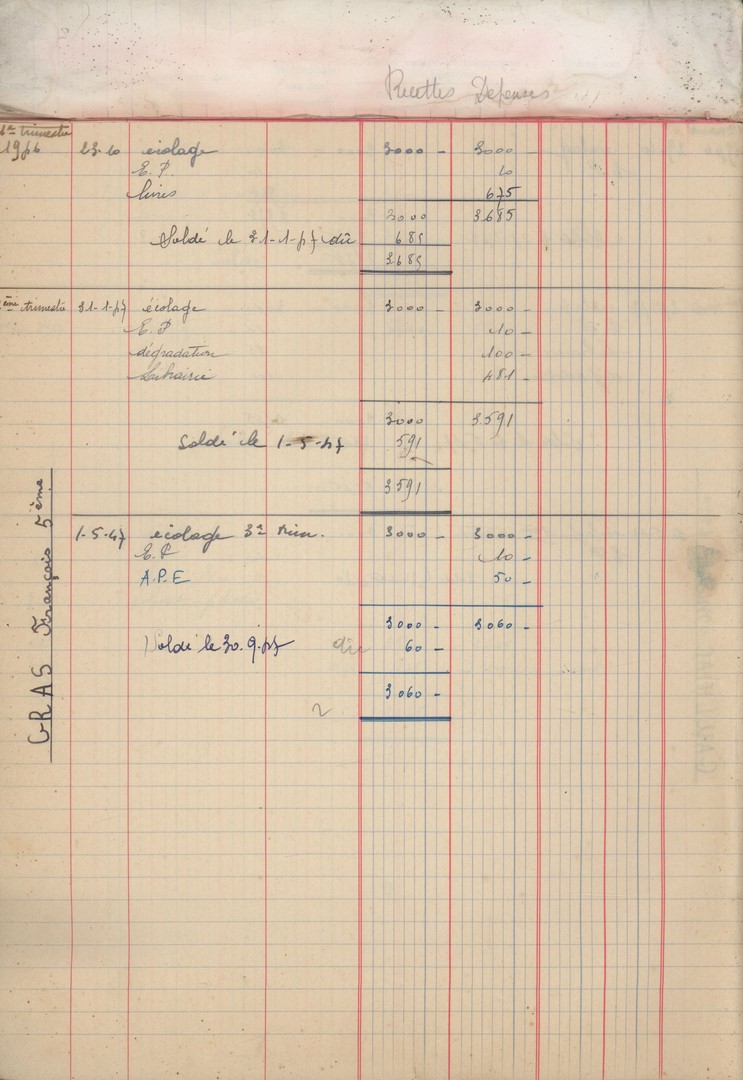 Recettes Depenses
1er trimestre
1946 23.10 écolage 3000 - 3000 -
E.P. 10
livres 675
3000 3.685
Soldé le 31-1-47 dû 685
3.685
2ème trimestre 31-1-47 écolage 3000 - 3000 -
E.P 10 -
dégradation 100 -
Librairie 481 -
3000 3.591
Soldé le 1-5-47 591
3591
1-5-47 écolage 3e trim. 3000 - 3000 -
E.P 10 -
A.P.E 50 -
3000 - 3060 -
Soldé le 30.9.47 dû 60 -
3060 -
GRAS François 5ème